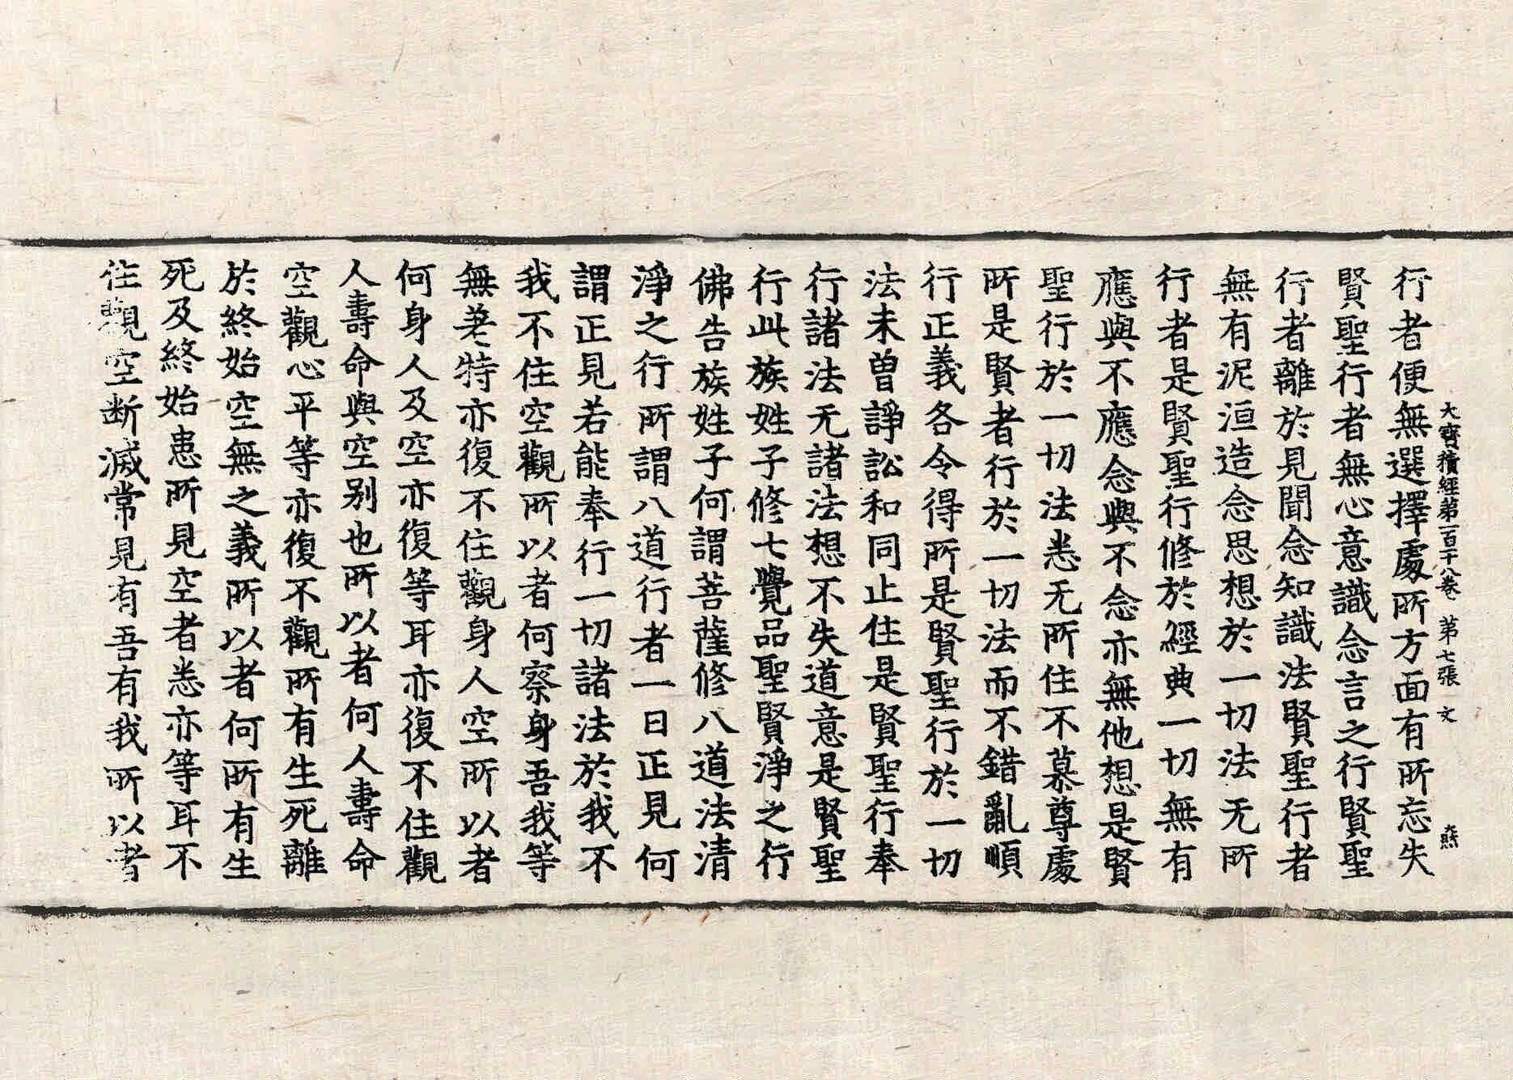 大寶積經第一百十八卷　第七張　文
行者便無選擇處所方面有所忘失
賢聖行者無心意識念言之行賢聖
行者離於見聞念知識法賢聖行者
無有泥洹造念思想於一切法无所
行者是賢聖行修於經典一切無有
應與不應念與不念亦無他想是賢
聖行於一切法悉无所住不慕尊處
所是賢者行於一切法而不錯亂順
行正義各令得所是賢聖行於一切
法未曾諍訟和同止住是賢聖行奉
行諸法无諸法想不失道意是賢聖
行此族姓子修七覺品聖賢淨之行
佛告族姓子何謂菩薩修八道法清
淨之行所謂八道行者一曰正見何
謂正見若能奉行一切諸法於我不
我不住空觀所以者何察身吾我等
無差特亦復不住觀身人空所以者
何身人及空亦復等耳亦復不住觀
人壽命與空別也所以者何人壽命
空觀心平等亦復不觀所有生死離
於終始空無之義所以者何所有生
死及終始患所見空者悉亦等耳不
住觀空断滅常見有吾有我所以者